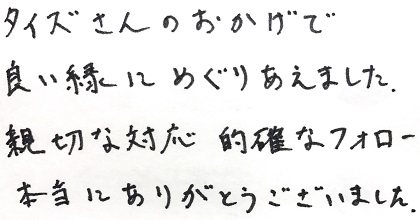 タイズさんのおかげで
良い縁にめぐりあえました.
親切な対応 的確なフォロー
本当にありがとうございました.